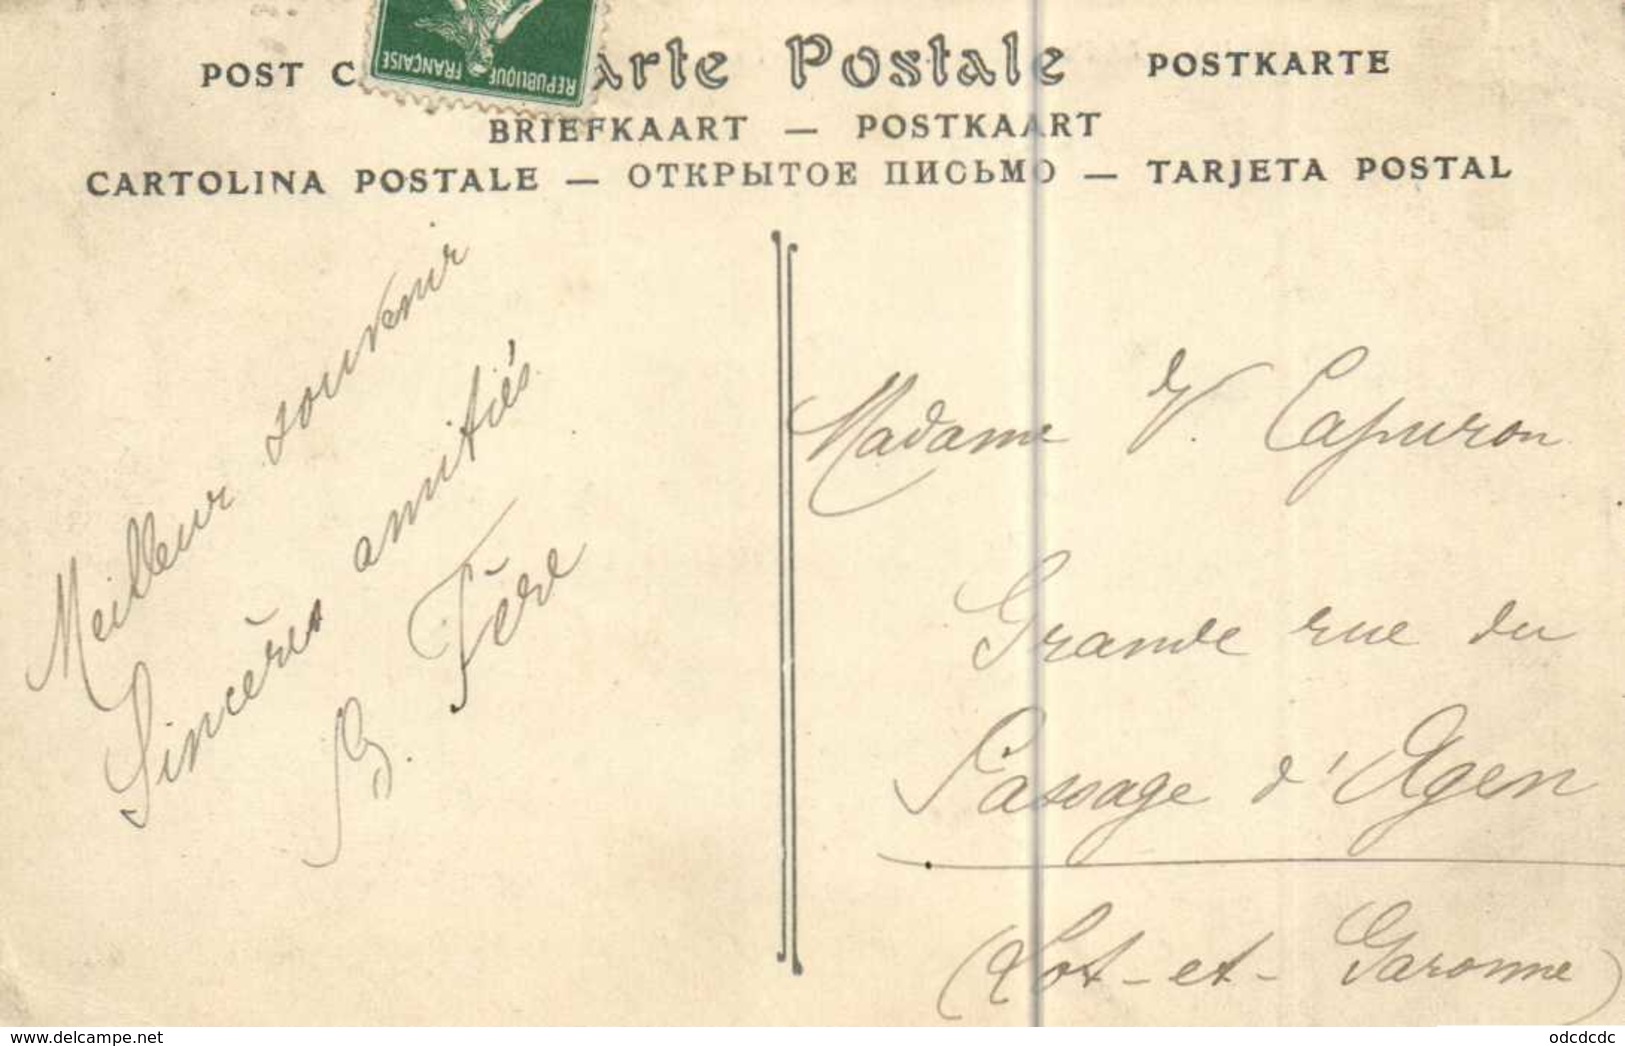 POST C
arte Postale
POSTKARTE
REPUBLIQUE FRANÇAISE
BRIEFKAART — POSTKAART
CARTOLINA POSTALE — ОТКРЫТОЕ ПИСЬМО — TARJETA POSTAL
Meilleur souvenir
Sincères amitiés
Fère
Madame V. Capuron
Grande rue du
Passage d'Agen
(Lot-et-Garonne)
www.delcampe.net
odcdcdc